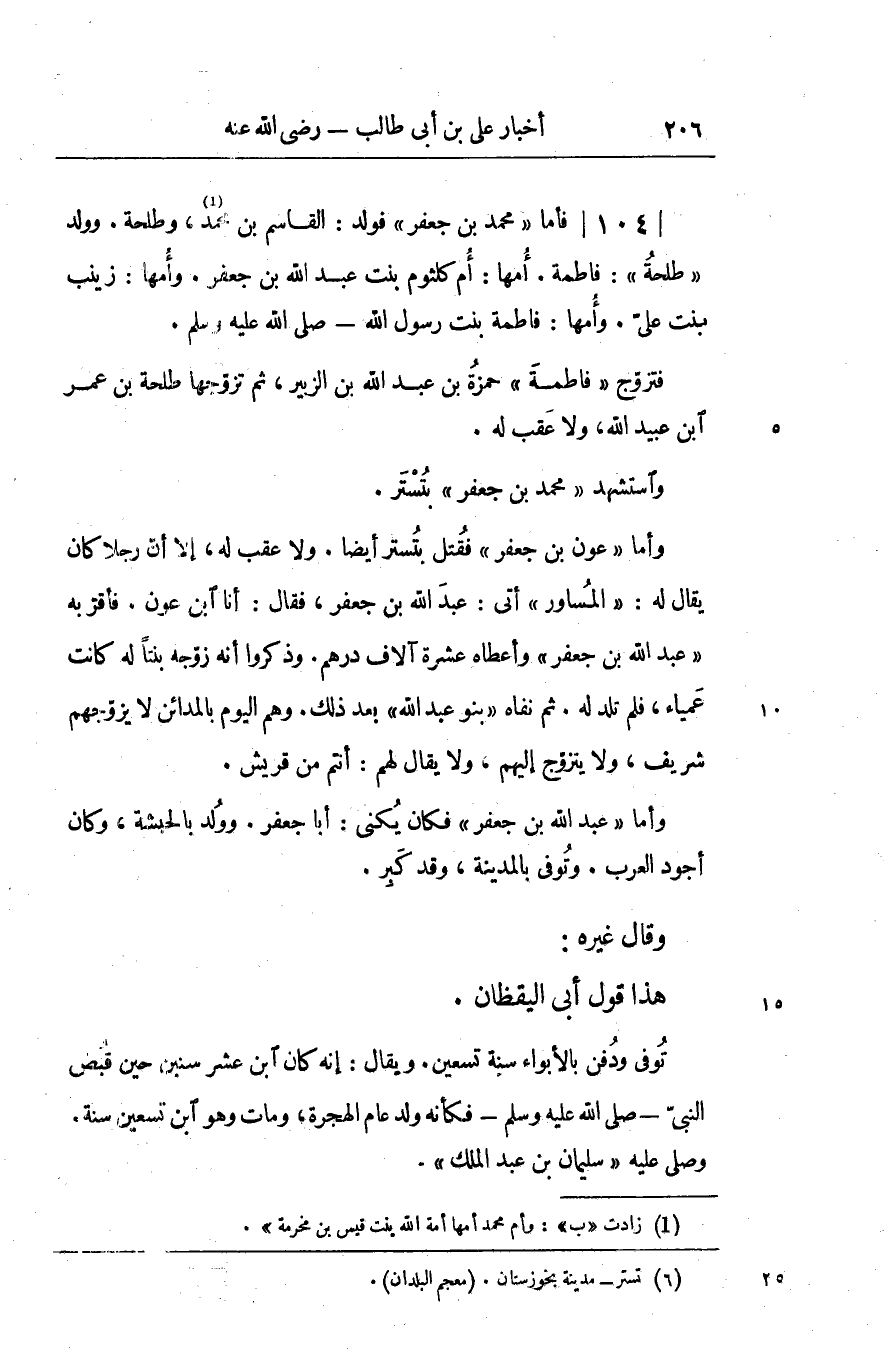 ٢٠٦ أخبار على بن أبى طالب — رضى الله عنه
| ١٠٤ | فأما « محمد بن جعفر » فولد : القاسم بن محمد (1) ، وطلحة . وولد
« طلحةُ » : فاطمة . أُمها : أُم كلثوم بنت عبد الله بن جعفر . وأُمها : زينب
بنت علىّ . وأُمها : فاطمة بنت رسول الله — صلى الله عليه وسلم .
فتزوّج « فاطمةَ » حمزةُ بن عبد الله بن الزبير ، ثم تزوّجها طلحة بن عمر
٥ ٱبن عبيد الله ، ولا عَقب له .
وٱستشهد « محمد بن جعفر » بتُسْتَر .
وأما « عون بن جعفر » فقُتل بتُستر أيضا . ولا عقب له ، إلا أنّ رجلا كان
يقال له : « المُساور » أتى : عبدَ الله بن جعفر ، فقال : أنا ٱبن عون . فأقرّ به
« عبد الله بن جعفر » وأعطاه عشرة آلاف درهم . وذكروا أنه زوّجه بنتاً له كانت
١٠ عَمياء ، فلم تلد له . ثم نفاه « بنو عبد الله » بعد ذلك . وهم اليوم بالمدائن لا يزوّجهم
شريف ، ولا يتزوّج إليهم ، ولا يقال لهم : أنتم من قريش .
وأما « عبد الله بن جعفر » فكان يُكنى : أبا جعفر . ووُلد بالحبشة ، وكان
أجود العرب . وتُوفى بالمدينة ، وقد كَبِر .
وقال غيره :
١٥ هذا قول أبى اليقظان .
تُوفى ودُفن بالأبواء سنة تسعين . ويقال : إنه كان ٱبن عشر سنين حين قُبض
النبىّ — صلى الله عليه وسلم — فكأنه ولد عام الهجرة ، ومات وهو ٱبن تسعين سنة .
وصلى عليه « سليمان بن عبد الملك » .
(1) زادت «ب» : وأم محمد أمها أمة الله بنت قيس بن مخرمة » .
٢٥ (٦) تستر — مدينة بخوزستان . (معجم البلدان) .